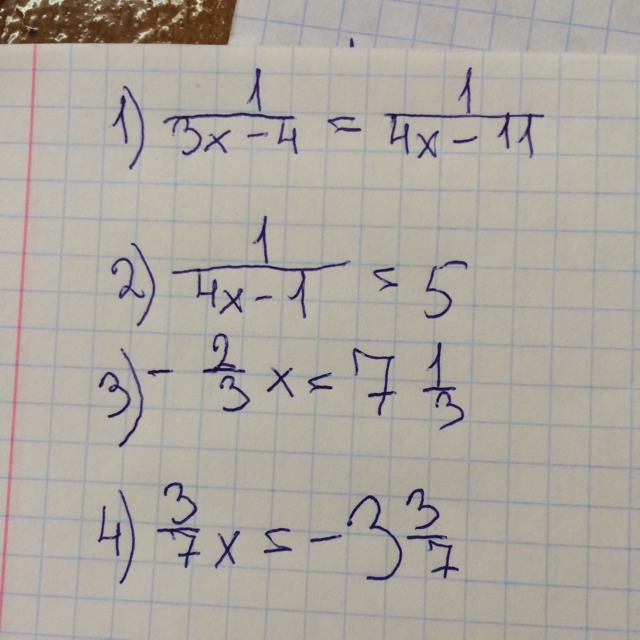 1) 1/(3x-4) = 1/(4x-11)
2) 1/(4x-1) = 5
3) - 2/3 x = 7 1/3
4) 3/7 x = -3 3/7